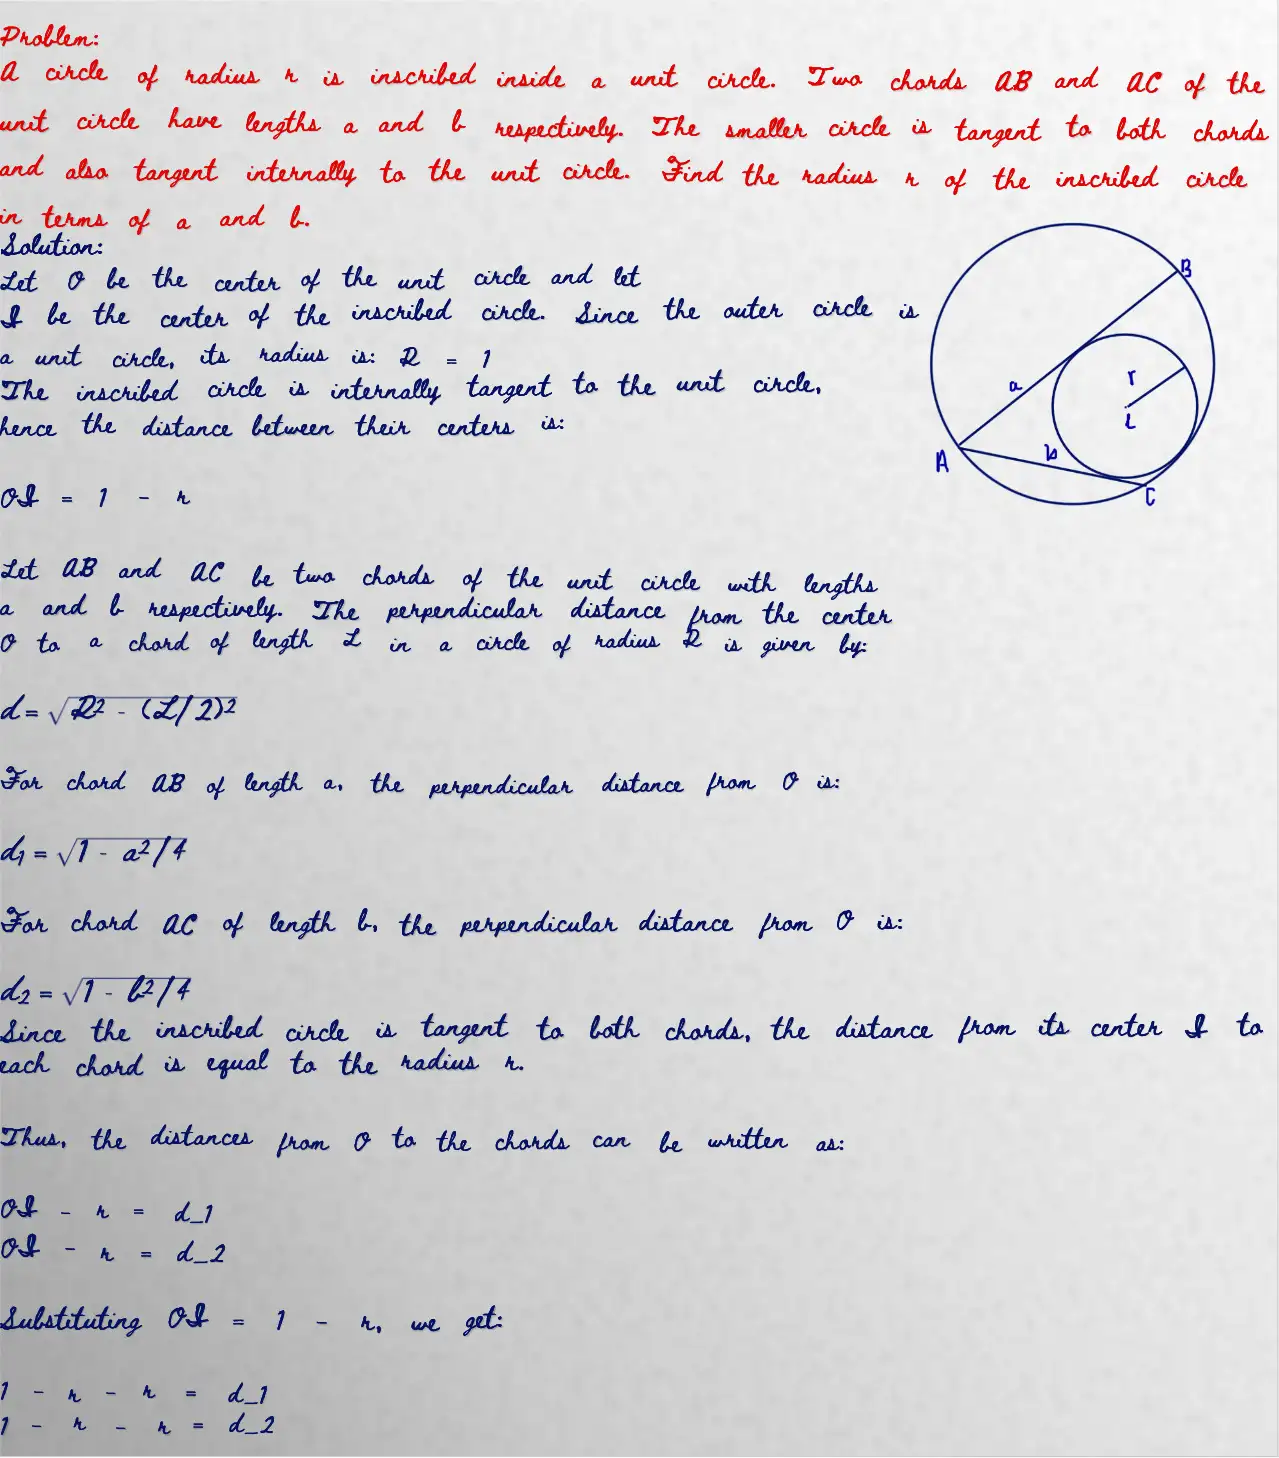 Problem:
A circle of radius r is inscribed inside a unit circle. Two chords AB and AC of the
unit circle have lengths a and b respectively. The smaller circle is tangent to both chords
and also tangent internally to the unit circle. Find the radius r of the inscribed circle
in terms of a and b.
Solution:
Let O be the center of the unit circle and let
I be the center of the inscribed circle. Since the outer circle is
a unit circle, its radius is: R = 1
The inscribed circle is internally tangent to the unit circle,
hence the distance between their centers is:
OI = 1 - r
Let AB and AC be two chords of the unit circle with lengths
a and b respectively. The perpendicular distance from the center
O to a chord of length L in a circle of radius R is given by:
d = √R2 - (L/2)2
For chord AB of length a, the perpendicular distance from O is:
d1 = √1 - a2/4
For chord AC of length b, the perpendicular distance from O is:
d2 = √1 - b2/4
Since the inscribed circle is tangent to both chords, the distance from its center I to
each chord is equal to the radius r.
Thus, the distances from O to the chords can be written as:
OI - r = d_1
OI - r = d_2
Substituting OI = 1 - r, we get:
1 - r - r = d_1
1 - r - r = d_2
B
a
r
i
b
A
C